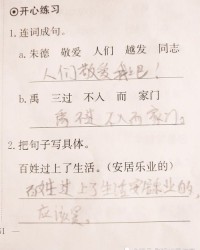 ⊙开心练习
1.连词成句。
a.朱德 敬爱 人们 越发 同志
人们敬爱
b.禹 三过 不入 而 家门
禹 不入而家门。
2.把句子写具体。
百姓过上了生活。(安居乐业的)
百姓过上了生活安居乐业的
51